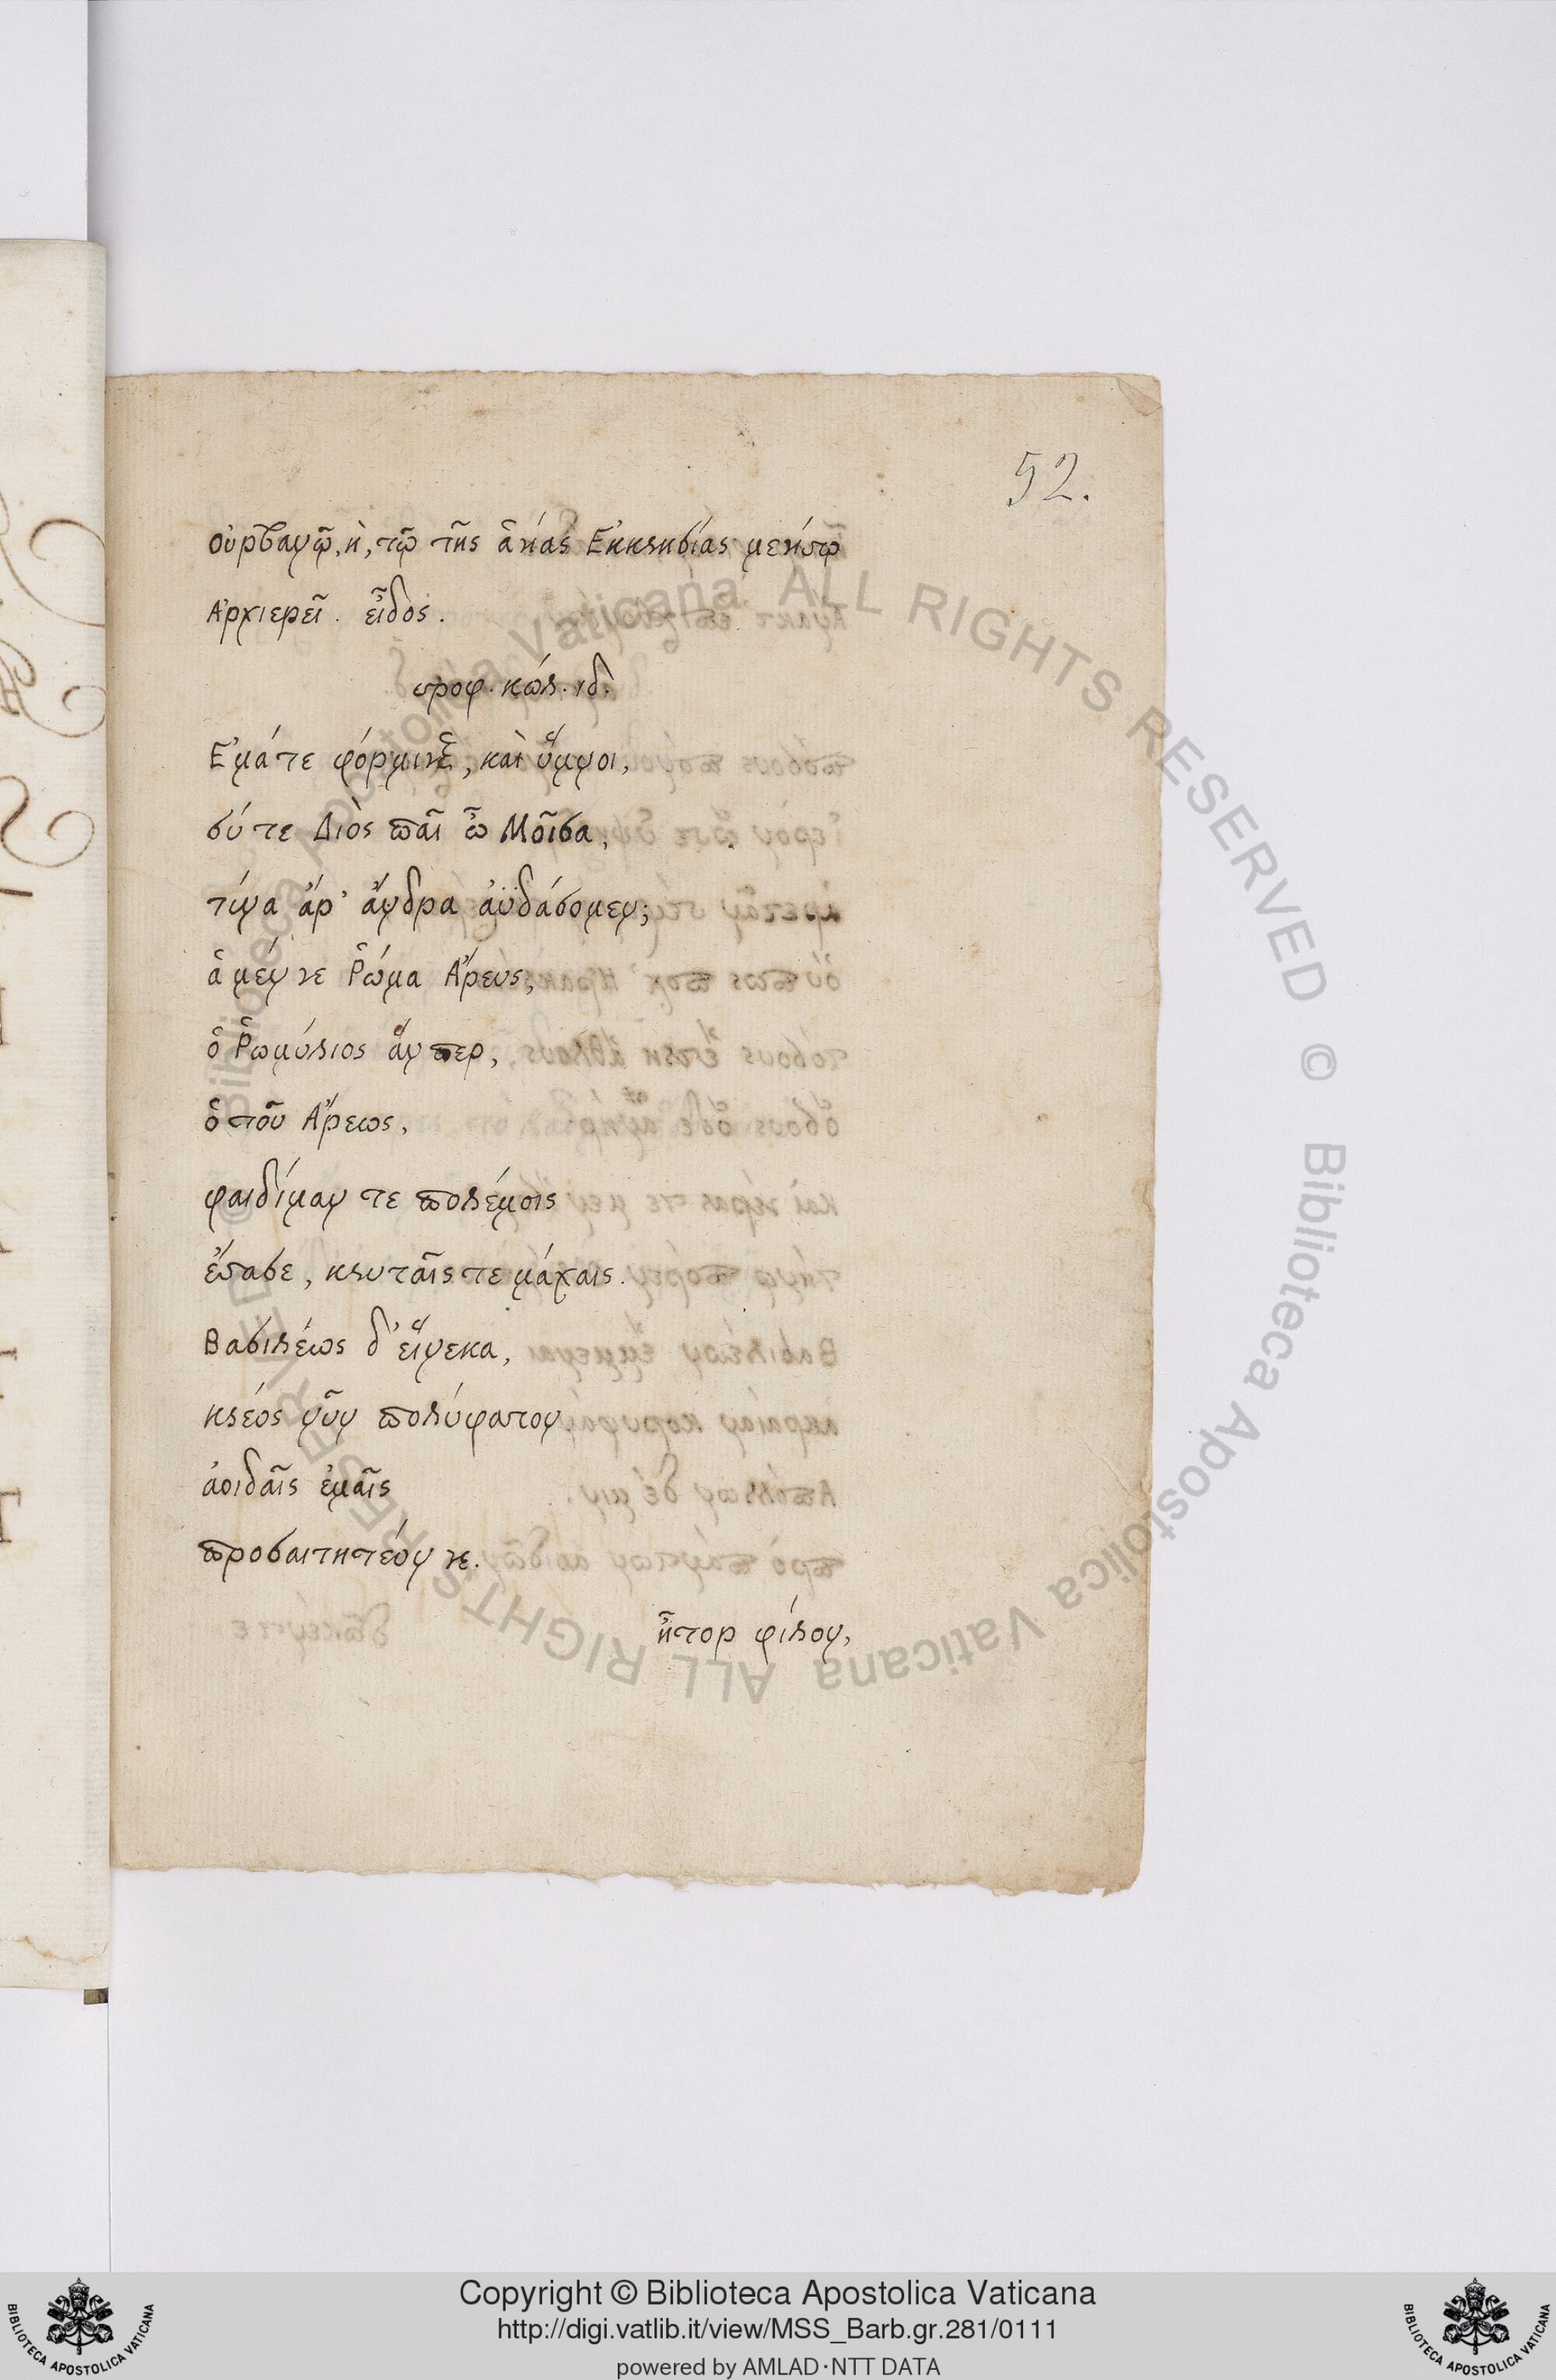 52.
Οὐρβανῷ, η, τῷ τῆς ἁγίας Ἐκκλησίας μεγίστῳ
Ἀρχιερεῖ. εἶδος.
στροφ. κώλ. ιδ.
Ἐμά τε φόρμινξ, καὶ ὕμνοι,
σύ τε Διὸς παῖ ὦ Μοῖσα,
τίνα ἄρ' ἄνδρα ἀϋδάσομεν;
ἁ μέν γε Ῥώμα Ἄρευς,
ὁ Ῥωμύλιος ἅν περ,
ὁ τοῦ Ἄρεως,
φαιδίμαν τε πολέμοις
ἔστασε, κλυταῖς τε μάχαις.
Βασιλέως δ' εἵνεκα,
κλέος νῦν πολύφατον
ἀοιδαῖς ἐμαῖς
προσαιτητέον γε.
ἦτορ φίλον,
Copyright © Biblioteca Apostolica Vaticana
http://digi.vatlib.it/view/MSS_Barb.gr.281/0111
powered by AMLAD·NTT DATA
BIBLIOTECA APOSTOLICA VATICANA
BIBLIOTECA APOSTOLICA VATICANA
© Biblioteca Apostolica Vaticana ALL RIGHTS RESERVED © Biblioteca Apostolica Vaticana ALL RIGHTS RESERVED